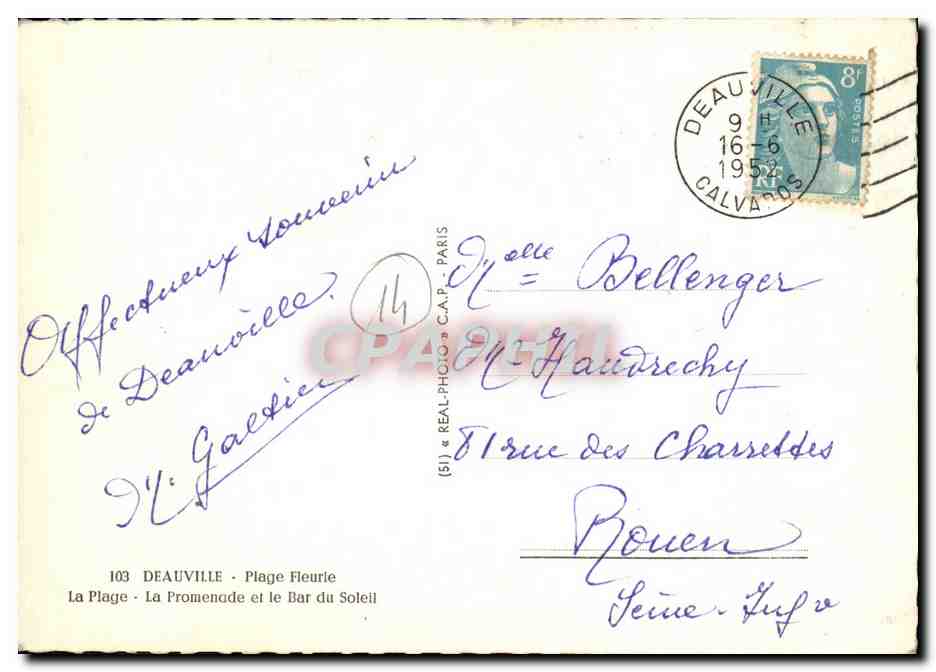 Affectueux souvenir
de Deauville.
M. Galtier
14
103 DEAUVILLE - Plage Fleurie
La Plage - La Promenade et le Bar du Soleil
(51) « REAL-PHOTO » C.A.P. - PARIS
DEAUVILLE
9 H
16-6
1952
CALVADOS
8f
POSTES
RF
Melle Bellenger
81 rue des Charrettes
Rouen
Seine-Infre
CPARHII